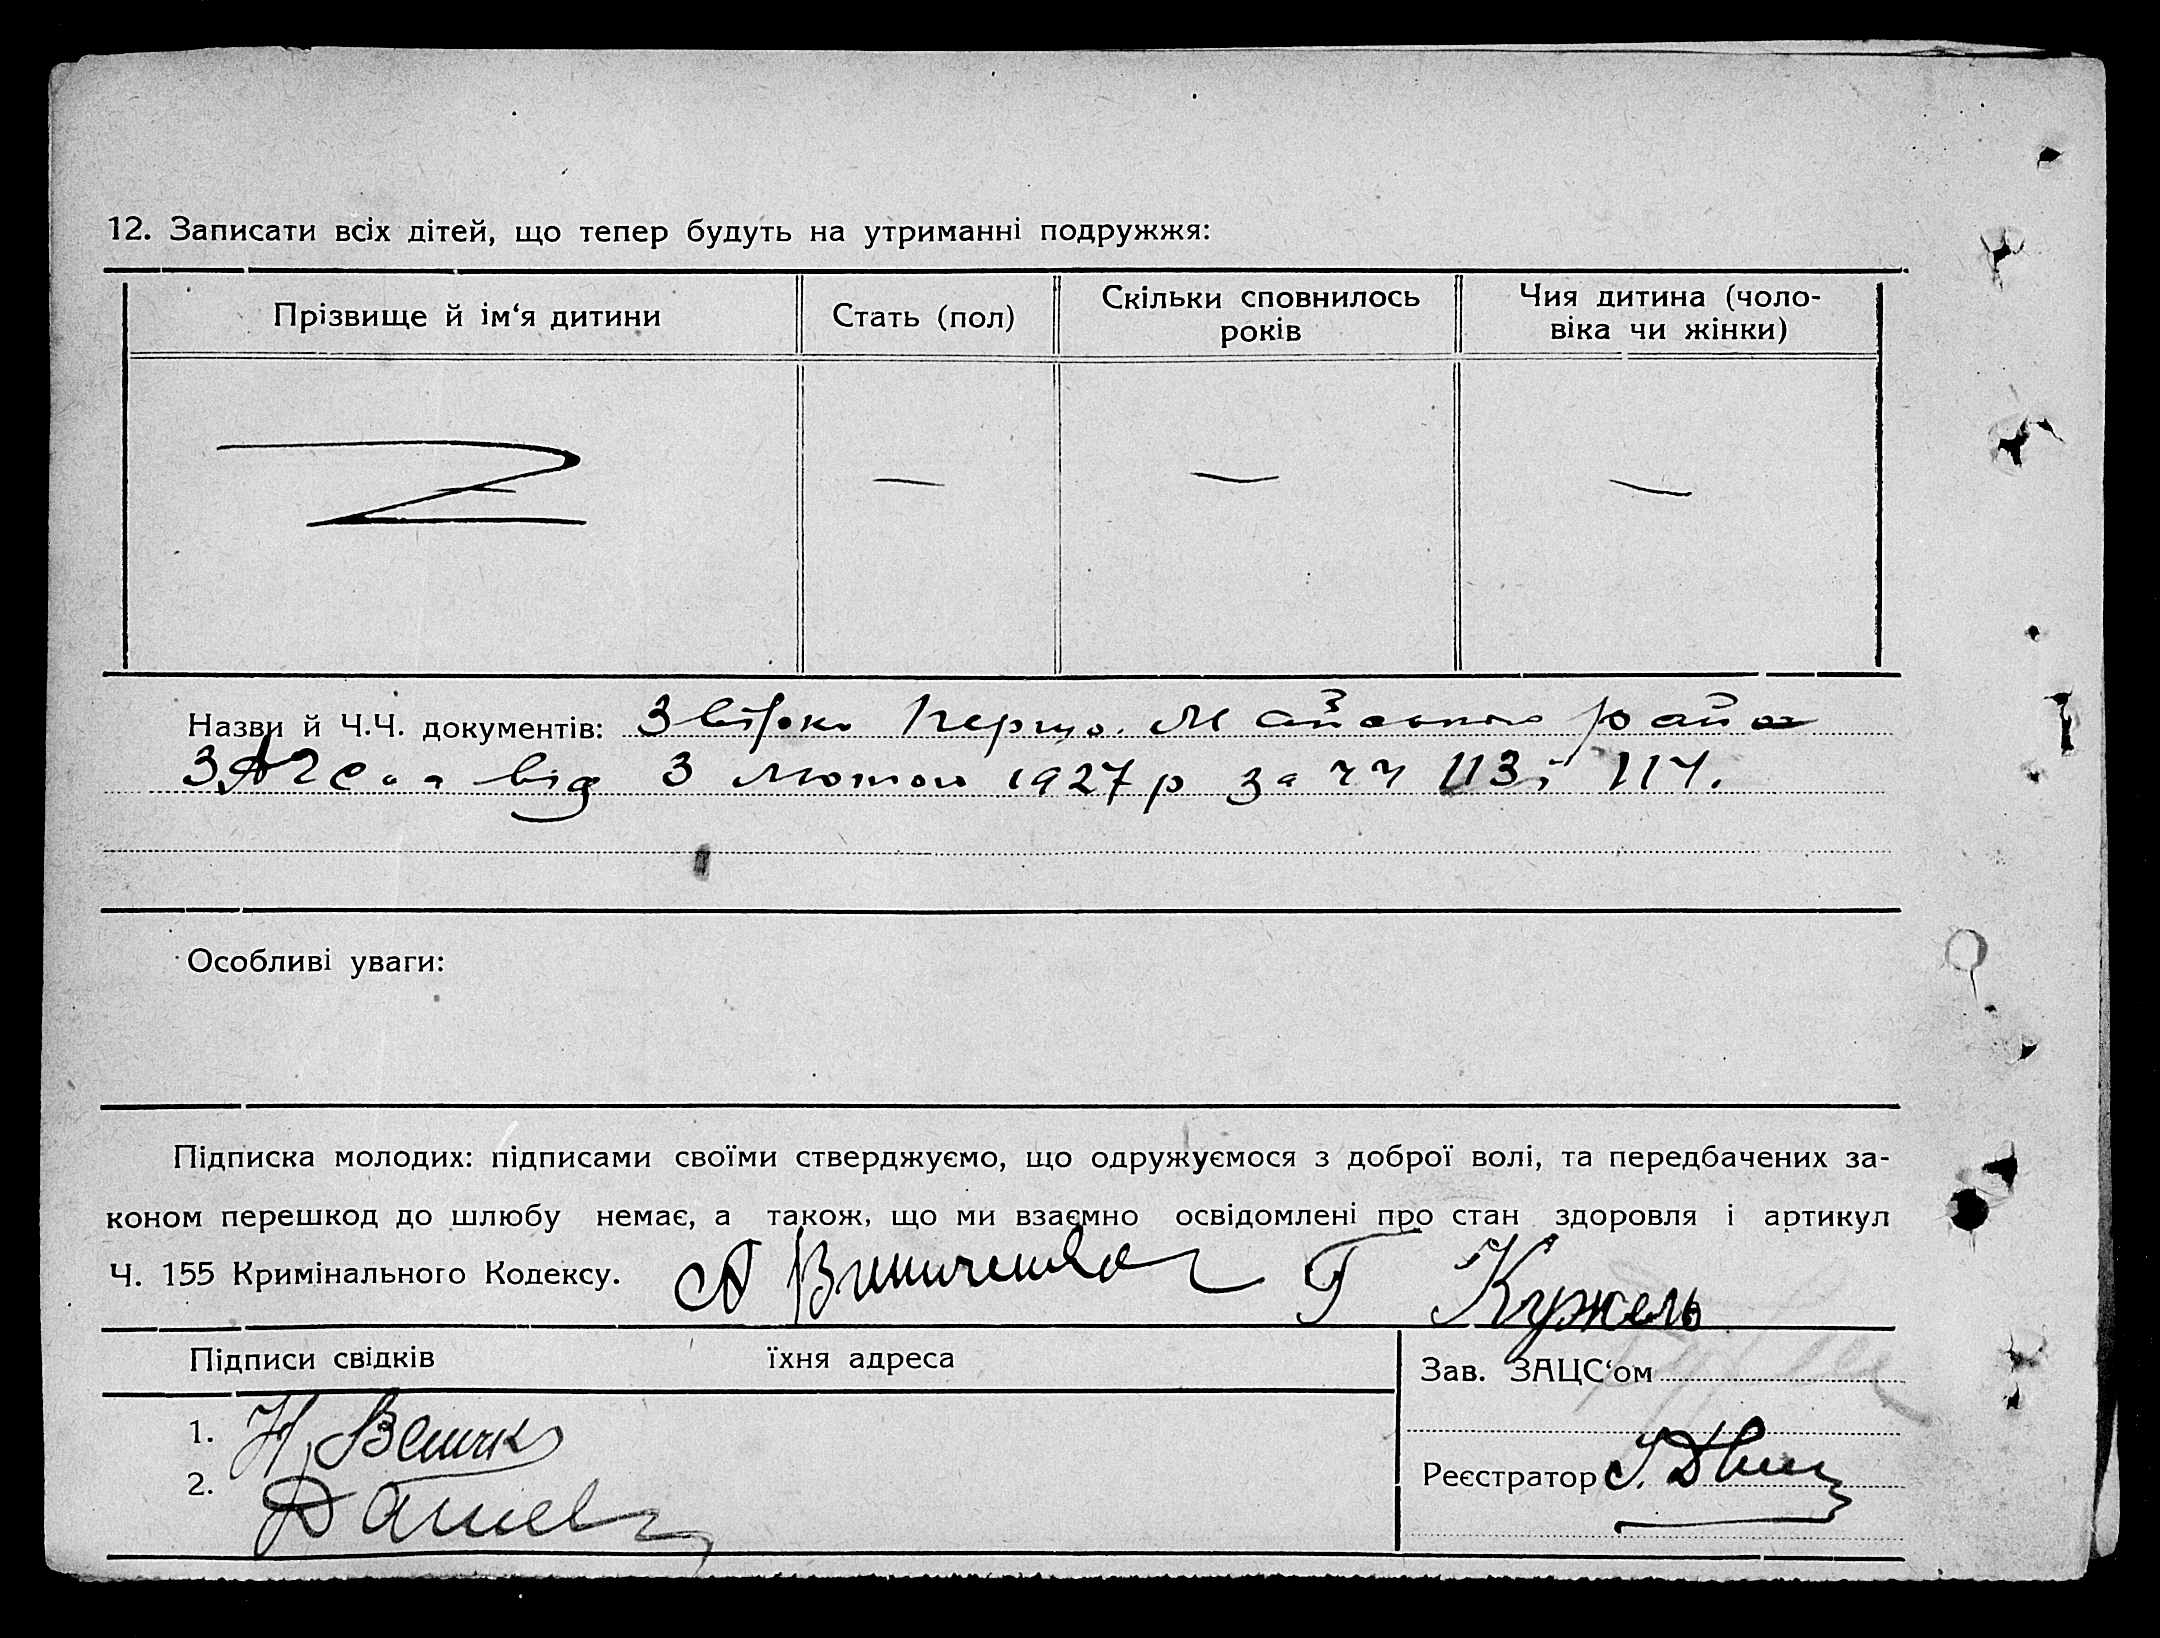 12. Записати всіх дітей, що тепер будуть на утриманні подружжя:
Прізвище й ім‘я дитини
Стать (пол)
Скільки сповнилось
років
Чия дитина (чоло-
віка чи жінки)
—
—
—
—
Назви й Ч.Ч. документів:
від 3 лютого 1927 р за чч 113 і 114.
Особливі уваги:
Підписка молодих: підписами своїми стверджуємо, що одружуємося з доброї волі, та передбачених за-
коном перешкод до шлюбу немає, а також, що ми взаємно освідомлені про стан здоровля і артикул
Ч. 155 Кримінального Кодексу. А Виниченко Г Кужель
Підписи свідків їхня адреса
Зав. ЗАЦС‘ом
1. Н
2.
Реєстратор